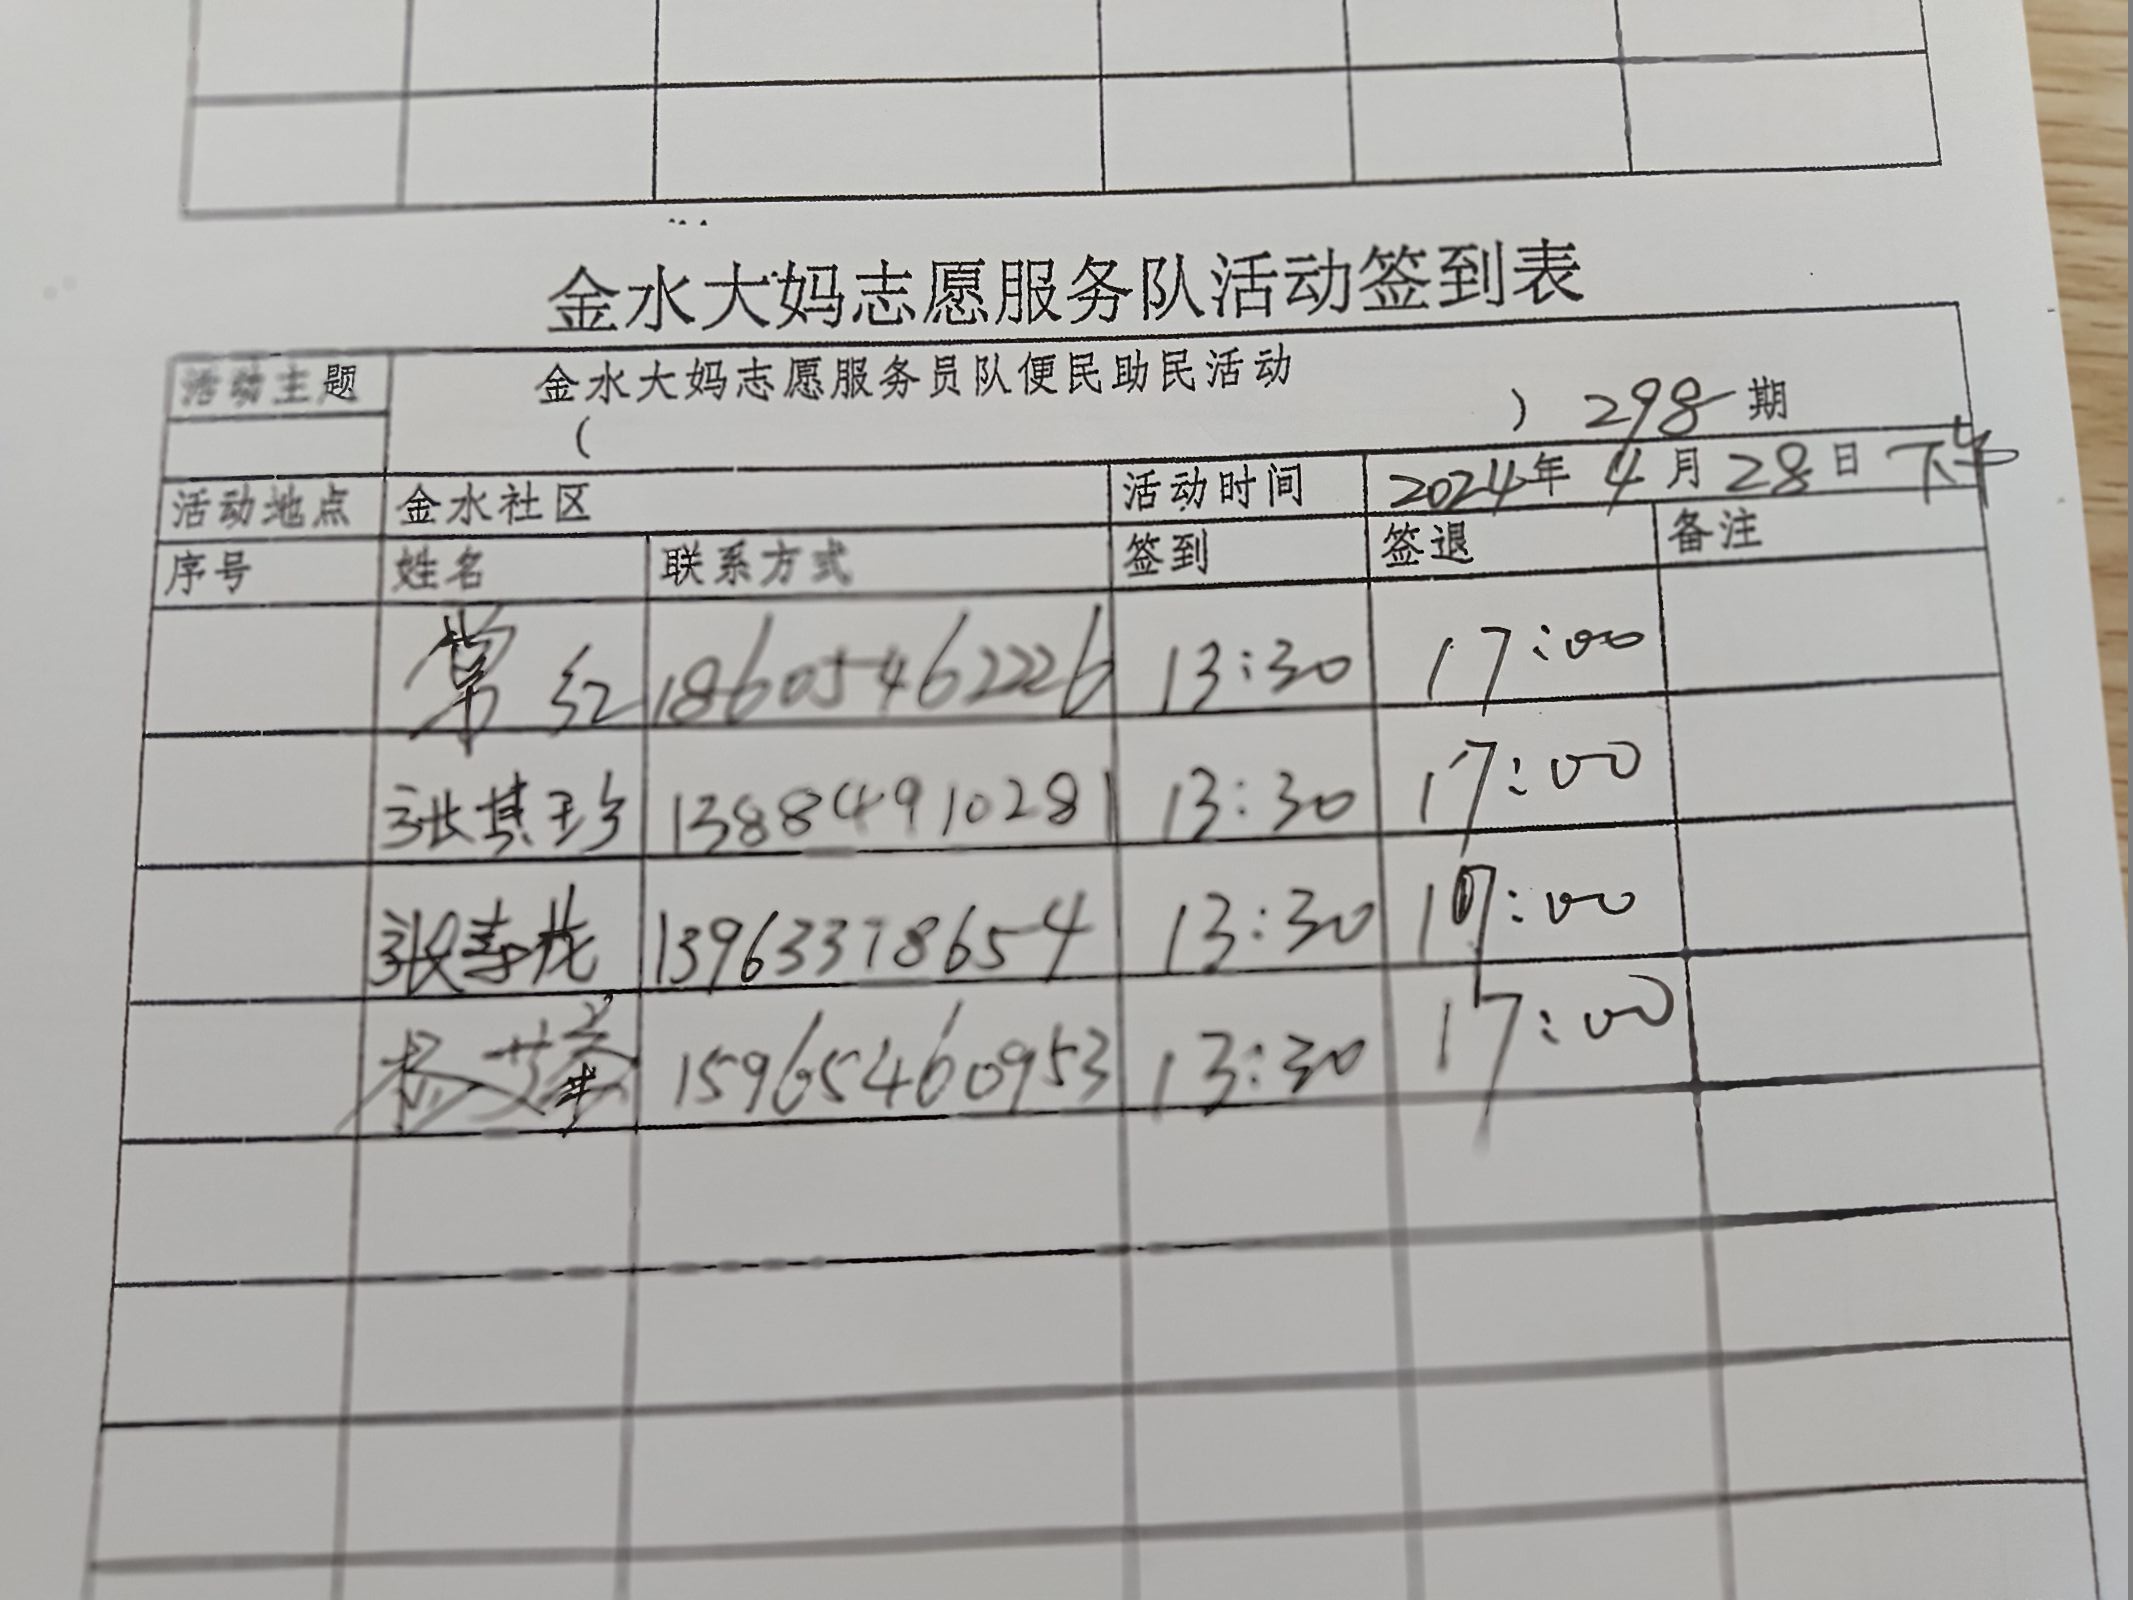 金水大妈志愿服务队活动签到表
活动主题 金水大妈志愿服务员队便民助民活动
( ) 298期
活动地点 金水社区 活动时间 2024年4月28日 下午
序号 姓名 联系方式 签到 签退 备注
常红 18605462226 13:30 17:00
张其珍 13884910281 13:30 17:00
张 13963378654 13:30 17:00
15965460953 13:30 17:00